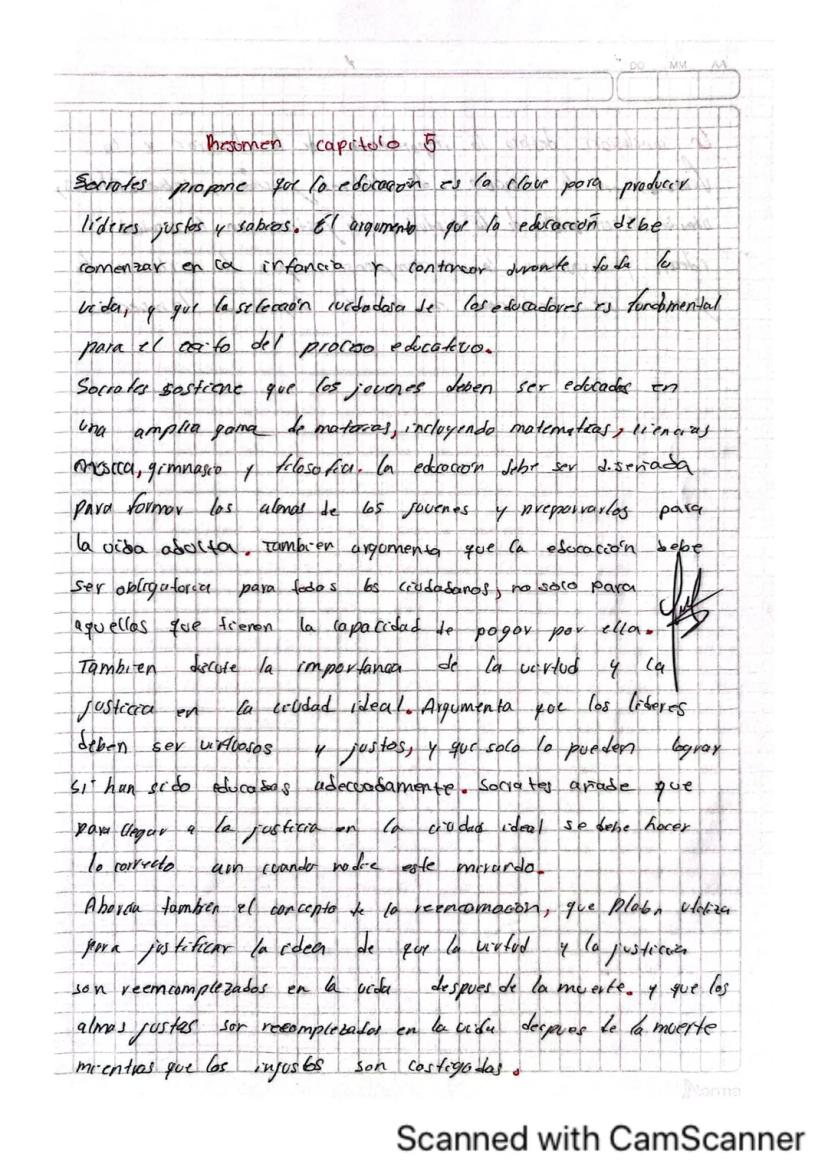 DD MM AA
Resumen capitulo 5
Socrates propone que la educación es la clave para producir
líderes justos y sabios. El argumento que la educacción debe
comenzar en la infancia y continuar durante toda la
vida, y que la selección cuidadosa de los educadores es fundamental
para el exito del proceso educativo.
Socrates sostiene que los jovenes deben ser educados en
una amplia gama de materias, incluyendo matematicas, ciencias
musica, gimnasio y filosofia. la educacion debe ser diseñada
para formar las almas de los jovenes y prepararlos para
la vida adulta. Tambien argumenta que la educación debe
ser obligatoria para todos los ciudadanos, no solo para
aquellos que tienen la capacidad de pagar por ella.
Tambien discute la importancia de la virtud y la
justicia en la ciudad ideal. Argumenta que los lideres
deben ser virtuosos y justos, y que solo lo pueden lograr
si han sido educados adecuadamente. Socrates añade que
para llegar a la justicia en la ciudad ideal se debe hacer
lo correcto aun cuando nadie este mirando.
Aborda tambien el concepto de la reencarnación, que Platon utiliza
para justificar la idea de que la virtud y la justicia
son reemcomplezados en la vida despues de la muerte. y que las
almas justas son recomplezados en la vida despues de la muerte
mientras que las injustas son castigadas.
Norma
Scanned with CamScanner